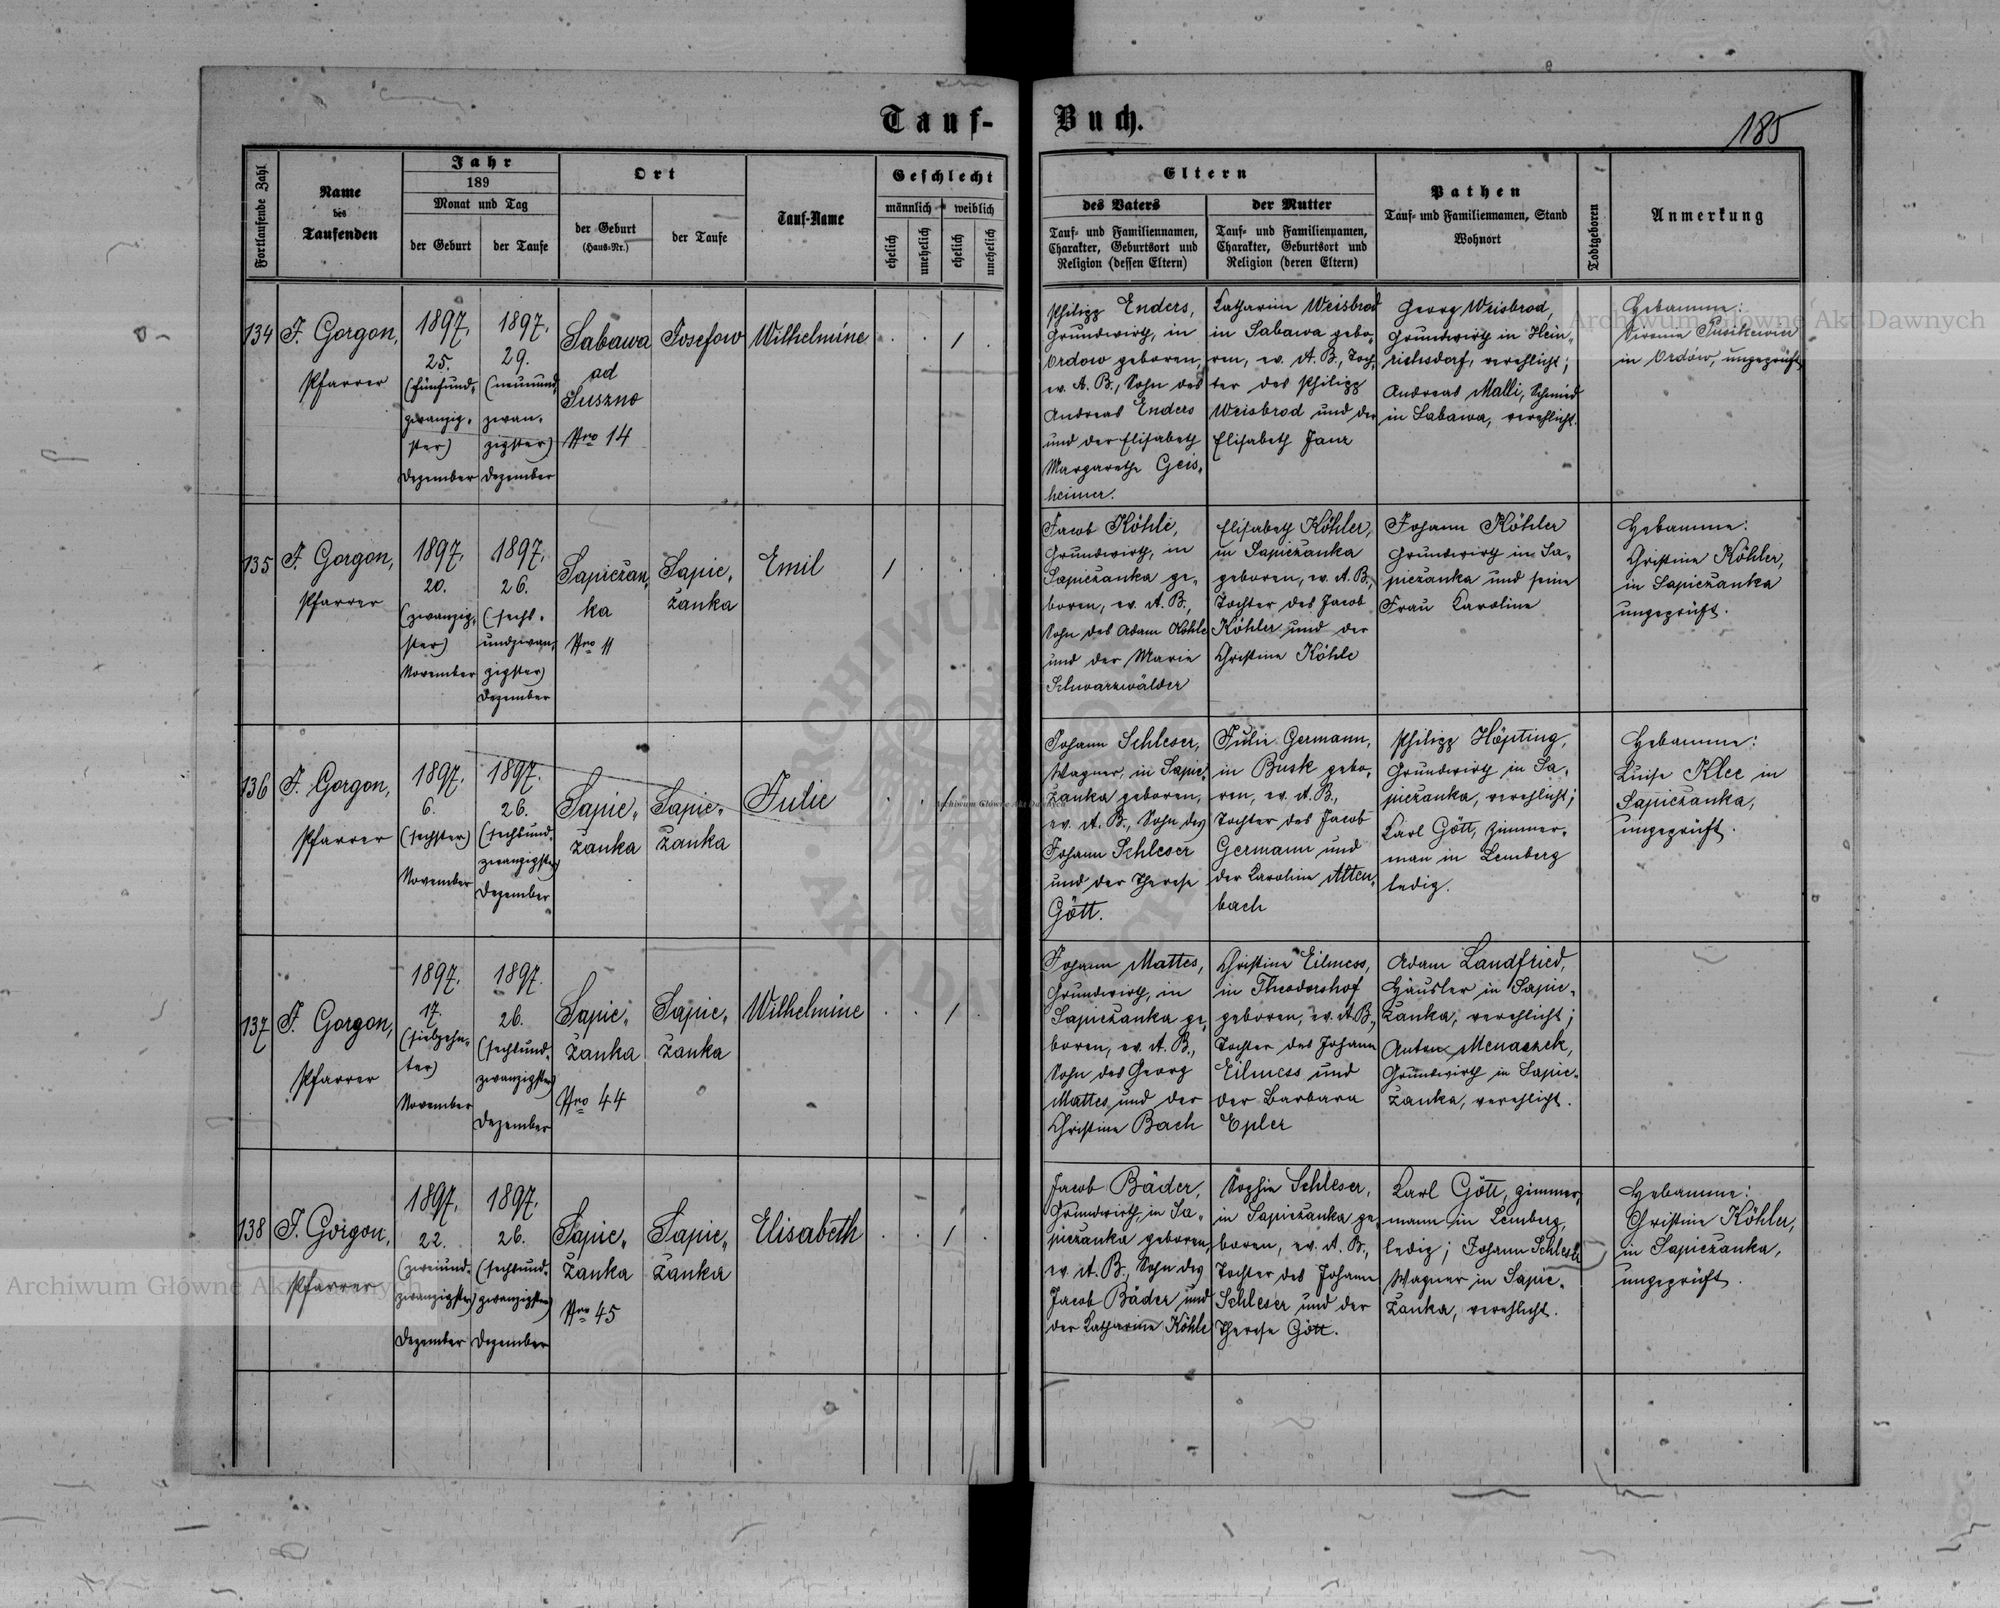 Tauf-
Buch.
185
Fortlaufende Zahl
Name
des
Taufenden
Jahr
189
Monat und Tag
der Geburt
der Taufe
Ort
der Geburt
(Haus-Nr.)
der Taufe
Tauf-Name
Geschlecht
männlich
weiblich
ehelich
unehelich
ehelich
unehelich
Eltern
des Vaters
Tauf- und Familiennamen,
Charakter, Geburtsort und
Religion (dessen Eltern)
der Mutter
Tauf- und Familiennamen,
Charakter, Geburtsort und
Religion (deren Eltern)
Pathen
Tauf- und Familiennamen, Stand
Wohnort
Todtgeboren
Anmerkung
134
F. Gorgon,
Pfarrer
1897.
25.
(fünfund-
zwanzig-
ster)
Dezember
1897.
29.
(neunund
zwan-
zigster)
Dezember
Sabawa
ad
Suszno
Nro 14
Josefow
Wilhelmine
1
Philipp Enders,
Grundwirth, in
Ordow geboren,
ev. A. B., Sohn des
Andreas Enders
und der Elisabeth
Margarethe Geis-
heimer.
Katharine Weisbrod
in Sabawa gebo-
ren, ev. A. B., Toch-
ter des Philipp
Weisbrod und der
Elisabeth Janz
Georg Weisbrod,
Grundwirth in Hein-
richsdorf, verehlicht;
Andreas Malli, Schmied
in Sabawa, verehlicht.
Hebamme:
in Ordów, ungeprüft
135
F. Gorgon,
Pfarrer
1897.
20.
(zwanzig-
ster)
November
1897.
26.
(sechs-
undzwan-
zigster)
Dezember
Sapiezan-
ka
Nro 11
Sapie-
żanka
Emil
1
Jacob Köhle,
Grundwirth, in
Sapieżanka ge-
boren, ev. A. B.,
Sohn des Adam Köhle
und der Marie
Schwarzwälder
Elisabeth Köhler,
in Sapieżanka
geboren, ev. A. B.,
Tochter des Jacob
Köhler und der
Christine Köhle
Johann Köhler
Grundwirth in Sa-
pieżanka und seine
Frau Karoline
Hebamme:
Christine Köhler,
in Sapieżanka
ungeprüft.
136
F. Gorgon,
Pfarrer
1897.
6.
(sechster)
November
1897.
26.
(sechsund-
zwanzigster)
Dezember
Sapie-
żanka
Sapie-
żanka
Julie
1
Johann Schleser,
Wagner, in Sapie-
żanka geboren,
ev. A. B., Sohn des
Johann Schleser
und der Therese
Gött.
Julie Germann,
in Busk gebo-
ren, ev. A. B.,
Tochter des Jacob
Germann und
der Karoline Alten-
bach
Philipp Höpting,
Grundwirth in Sa-
pieżanka, verehlicht;
Karl Gött, Zimmer-
man in Lemberg
ledig.
Hebamme:
Luise Klee in
Sapieżanka,
ungeprüft.
137
F. Gorgon,
Pfarrer
1897.
17.
(siebzehn-
ter)
November
1897.
26.
(sechsund-
zwanzigster)
Dezember
Sapie-
żanka
Nro 44
Sapie-
żanka
Wilhelmine
1
Johann Mattes,
Grundwirth, in
Sapieżanka ge-
boren, ev. A. B.,
Sohn des Georg
Mattes und der
Christine Bach
Christine Eilmess,
in Theodorshof
geboren, ev. A. B.,
Tochter des Johann
Eilmess und
der Barbara
Epler
Adam Landfried,
Häusler in Sapie-
żanka, verehlicht;
Anton Menaszek,
Grundwirth in Sapie-
żanka, verehlicht.
138
F. Gorgon,
Pfarrer
1897.
22.
(zweiund-
zwanzigster)
Dezember
1897.
26.
(sechsund-
zwanzigster)
Dezember
Sapie-
żanka
Nro 45
Sapie-
żanka
Elisabeth
1
Jacob Bäder,
Grundwirth, in Sa-
pieżanka geboren,
ev. A. B., Sohn des
Jacob Bäder und
der Katharine Köhle
Sophie Schleser,
in Sapieżanka ge-
boren, ev. A. B.,
Tochter des Johann
Schleser und der
Therese Gött.
Karl Gött, Zimmer-
mann in Lemberg,
ledig; Johann Schleser
Wagner in Sapie-
żanka, verehlicht.
Hebamme:
Christine Köhler,
in Sapieżanka,
ungeprüft.
Archiwum Główne Akt Dawnych
Archiwum Główne Akt Dawnych
Archiwum Główne Akt Dawnych